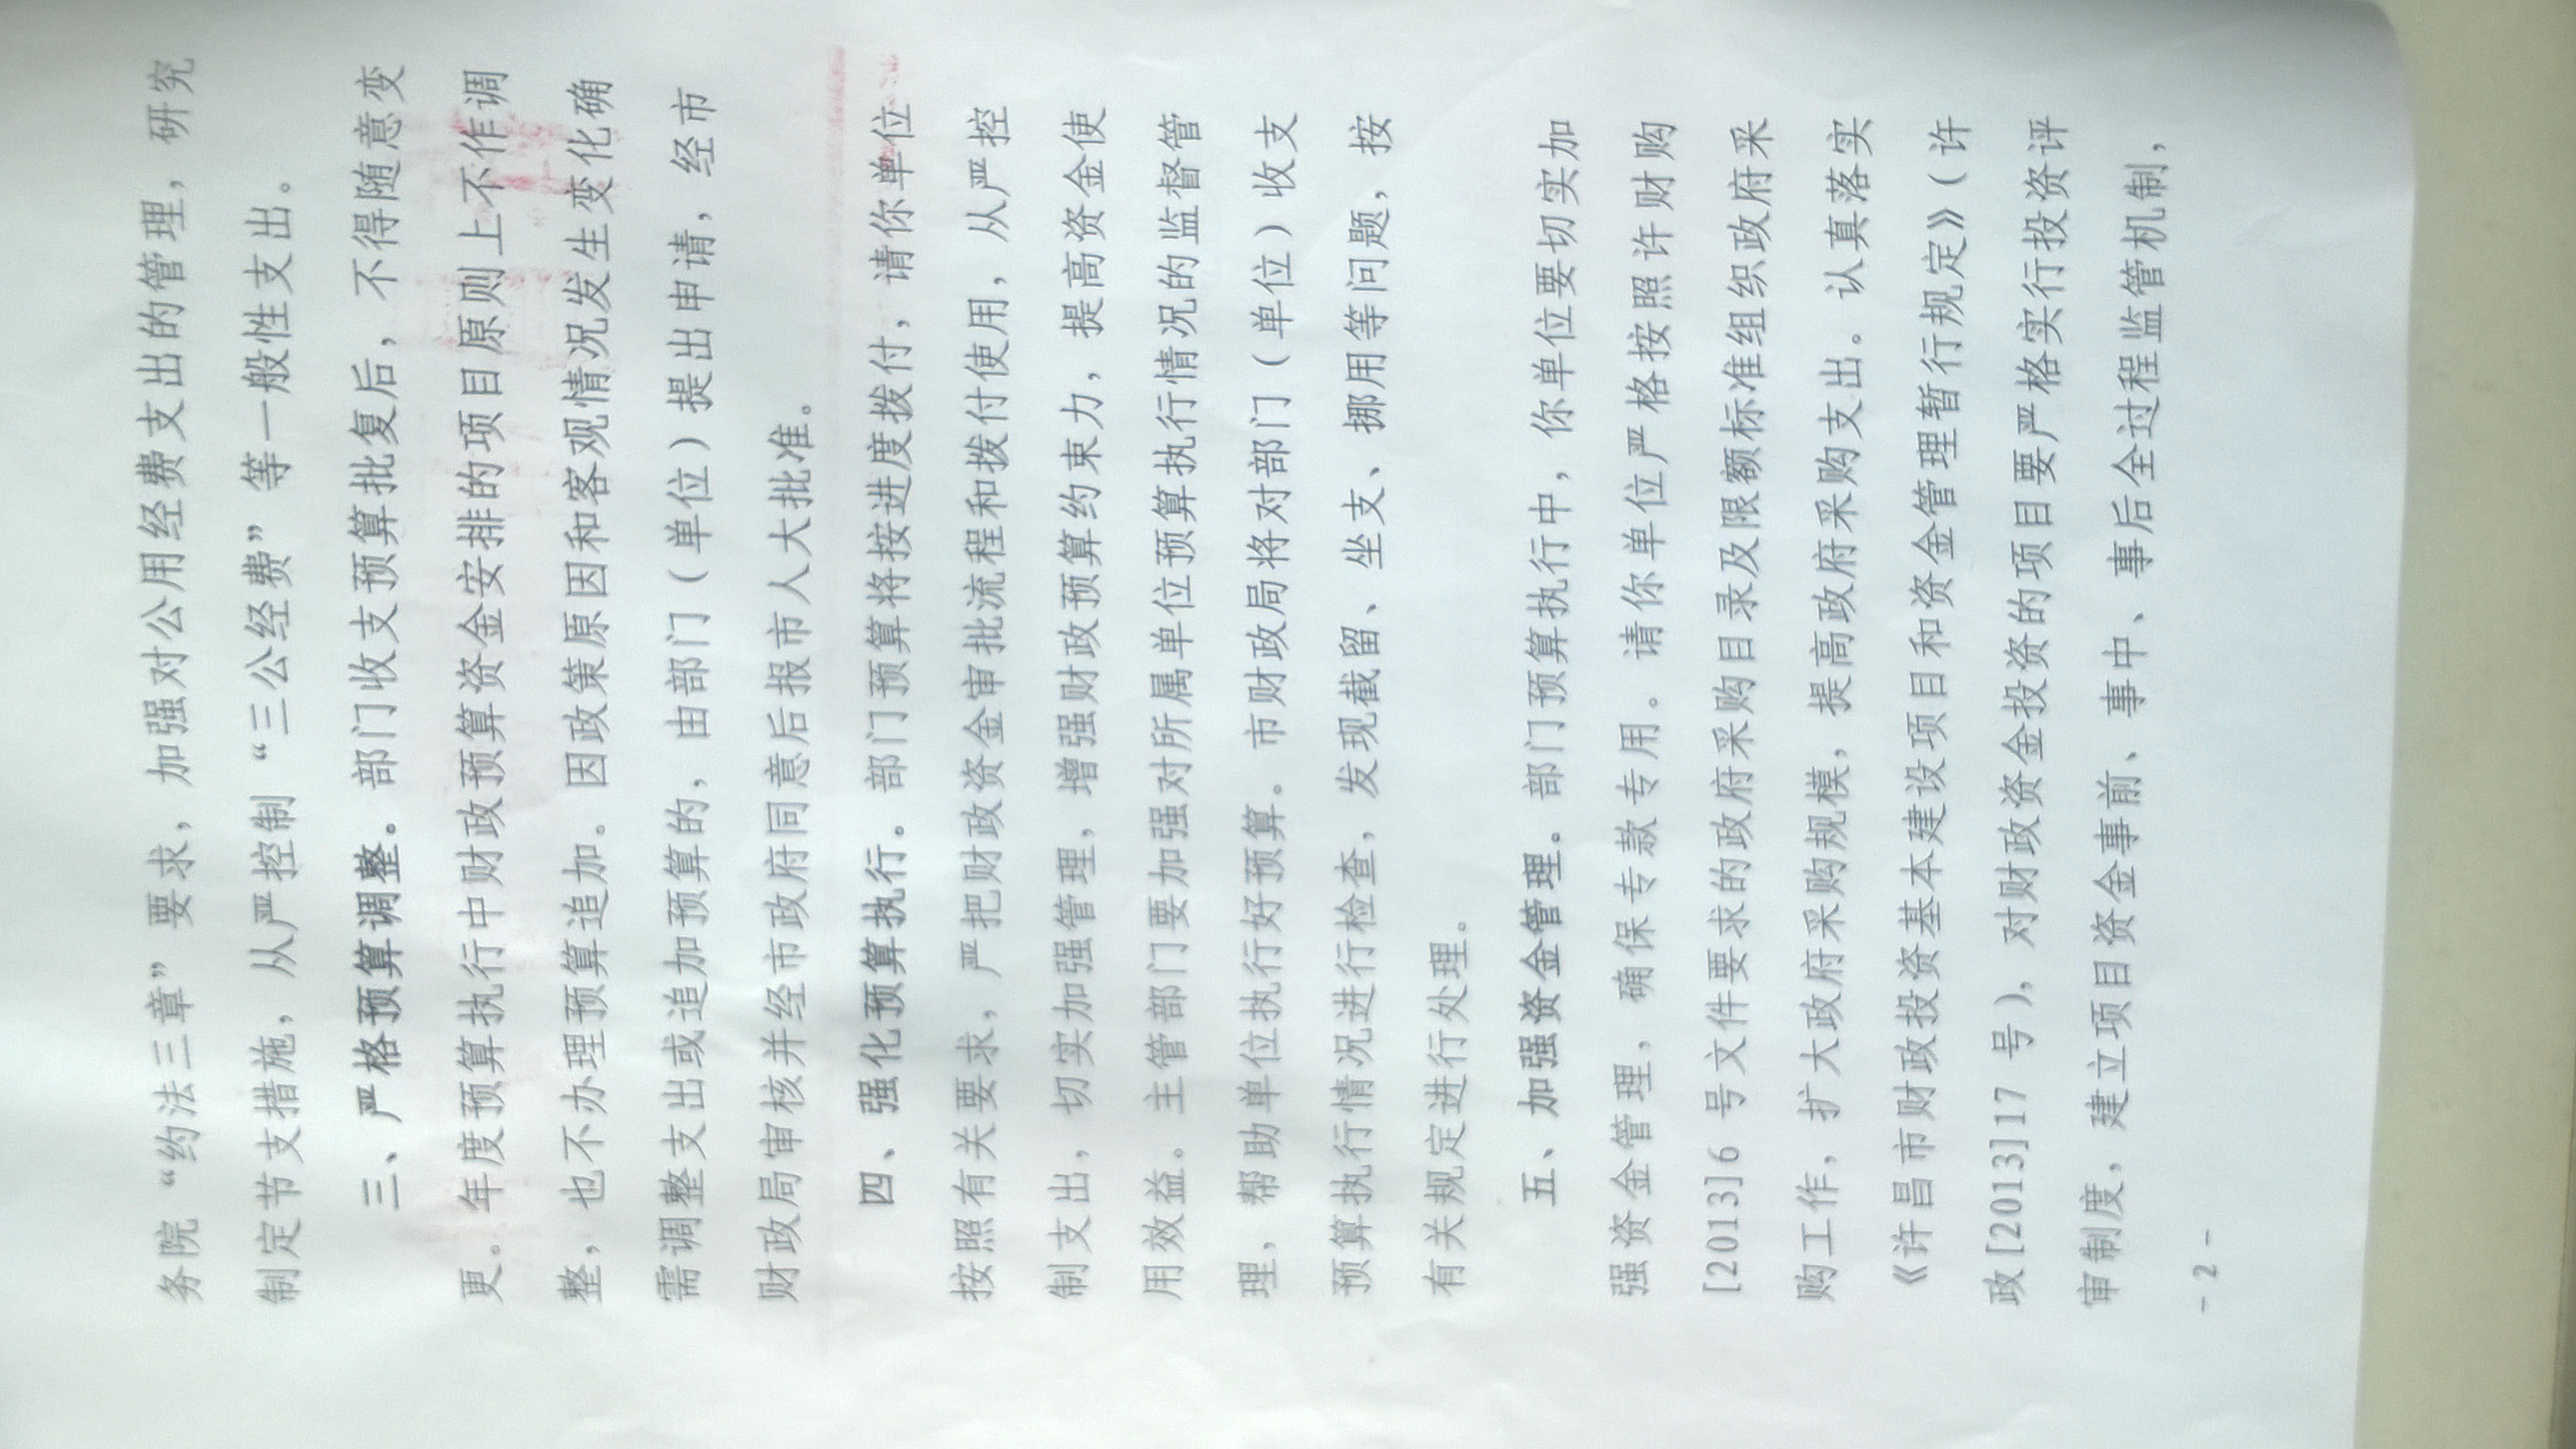 务院“约法三章”要求，加强对公用经费支出的管理，研究
制定节支措施，从严控制“三公经费”等一般性支出。
三、严格预算调整。部门收支预算批复后，不得随意变
更。年度预算执行中财政预算资金安排的项目原则上不作调
整，也不办理预算追加。因政策原因和客观情况发生变化确
需调整支出或追加预算的，由部门（单位）提出申请，经市
财政局审核并经市政府同意后报市人大批准。
四、强化预算执行。部门预算将按进度拨付，请你单位
按照有关要求，严把财政资金审批流程和拨付使用，从严控
制支出，切实加强管理，增强财政预算约束力，提高资金使
用效益。主管部门要加强对所属单位预算执行情况的监督管
理，帮助单位执行好预算。市财政局将对部门（单位）收支
预算执行情况进行检查，发现截留、坐支、挪用等问题，按
有关规定进行处理。
五、加强资金管理。部门预算执行中，你单位要切实加
强资金管理，确保专款专用。请你单位严格按照许财购
[2013]6 号文件要求的政府采购目录及限额标准组织政府采
购工作，扩大政府采购规模，提高政府采购支出。认真落实
《许昌市财政投资基本建设项目和资金管理暂行规定》（许
政[2013]17 号），对财政资金投资的项目要严格实行投资评
审制度，建立项目资金事前、事中、事后全过程监管机制，
- 2 -